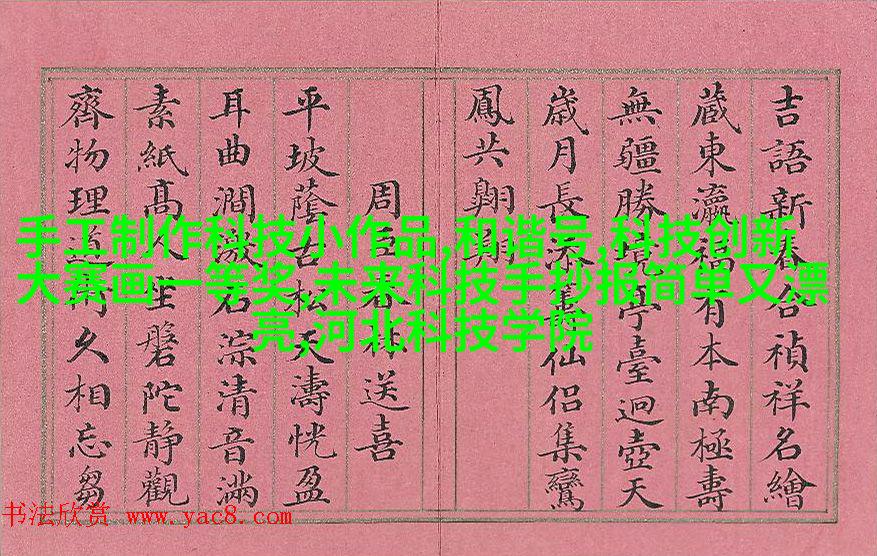 吉語新春合禎祥名繪
藏東瀛福有本南極壽
無疆勝亭臺迴壺天
歲月長添籌仙侶集鸞
鳳共翱翔
周臣送喜
平坡蔭古松天濤恍盈
耳曲澗激石淙清音滿
素紙高人坐磐陀靜觀
齊物理久相忘芻
手工制作科技小作品,和谐号,科技创新
大赛画一等奖,未来科技手抄报简单又漂
亮,河北科技学院
书法欣赏 www.yac8.com